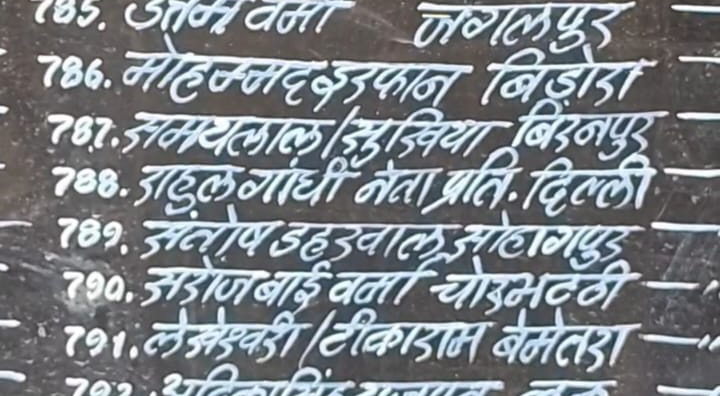 785. उत्तम वर्मा जंगलपुर
786. मोहम्मद इरफान बिडोरा
787. समयलाल/सुखिया बिरनपुर
788. राहुल गांधी नेता प्रति. दिल्ली
789. संतोष डहरवाल सोहागपुर
790. सरोज बाई वर्मा चोरभटठी
791. लेखेश्वरी/टीकाराम बेमेतरा
792.